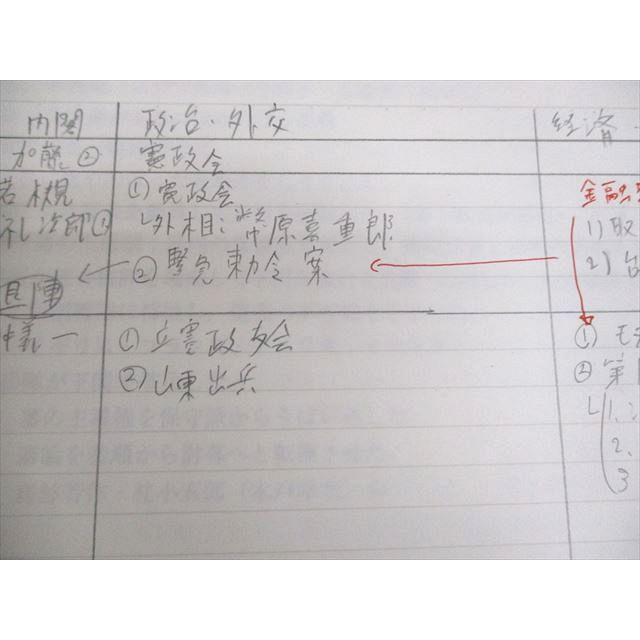 内閣 政治・外交 経済
加藤② 憲政会
若槻 ① 憲政会 金融
礼次郎① 外相:幣原喜重郎 1)取
② 緊急勅令案 2)台
総辞職
義一 ① 立憲政友会 ① モ
② 山東出兵 ② 第
1.
2.
3